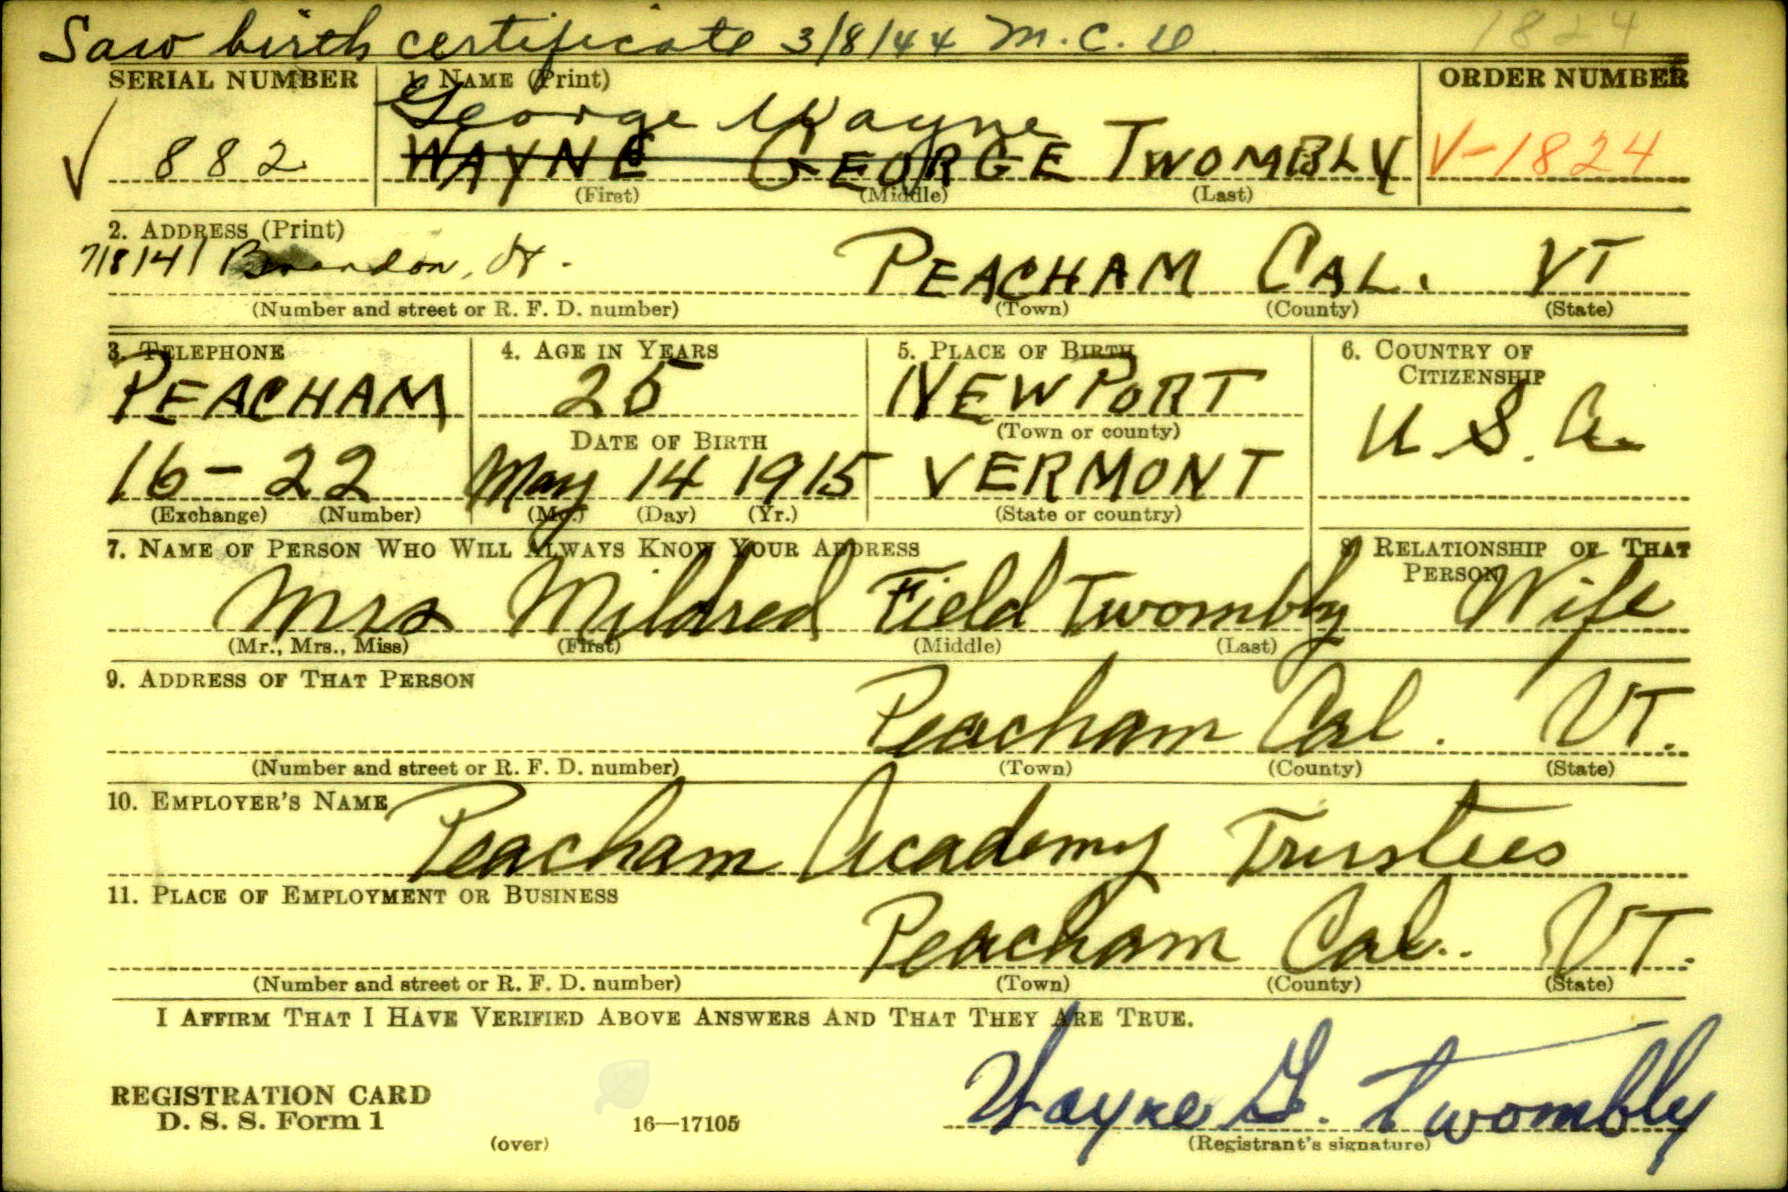 Saw birth certificate 3/8/44 M.C.D 1824
SERIAL NUMBER 1. NAME (Print) ORDER NUMBER
George Wayne
✓ 882 WAYNE GEORGE TWOMBLY V-1824
(First) (Middle) (Last)
2. ADDRESS (Print)
7/8/41 Brandon, Vt. PEACHAM CAL. VT
(Number and street or R. F. D. number) (Town) (County) (State)
3. TELEPHONE 4. AGE IN YEARS 5. PLACE OF BIRTH 6. COUNTRY OF
CITIZENSHIP
PEACHAM 25 NEWPORT U.S.A.
DATE OF BIRTH (Town or county)
16-22 May 14 1915 VERMONT
(Exchange) (Number) (Mo.) (Day) (Yr.) (State or country)
7. NAME OF PERSON WHO WILL ALWAYS KNOW YOUR ADDRESS 8. RELATIONSHIP OF THAT
PERSON
Mrs Mildred Field Twombly Wife
(Mr., Mrs., Miss) (First) (Middle) (Last)
9. ADDRESS OF THAT PERSON
Peacham Cal. VT.
(Number and street or R. F. D. number) (Town) (County) (State)
10. EMPLOYER'S NAME
Peacham Academy Trustees
11. PLACE OF EMPLOYMENT OR BUSINESS
Peacham Cal.. VT.
(Number and street or R. F. D. number) (Town) (County) (State)
I AFFIRM THAT I HAVE VERIFIED ABOVE ANSWERS AND THAT THEY ARE TRUE.
REGISTRATION CARD
D. S. S. Form 1 16—17105 Wayne G. Twombly
(over) (Registrant's signature)